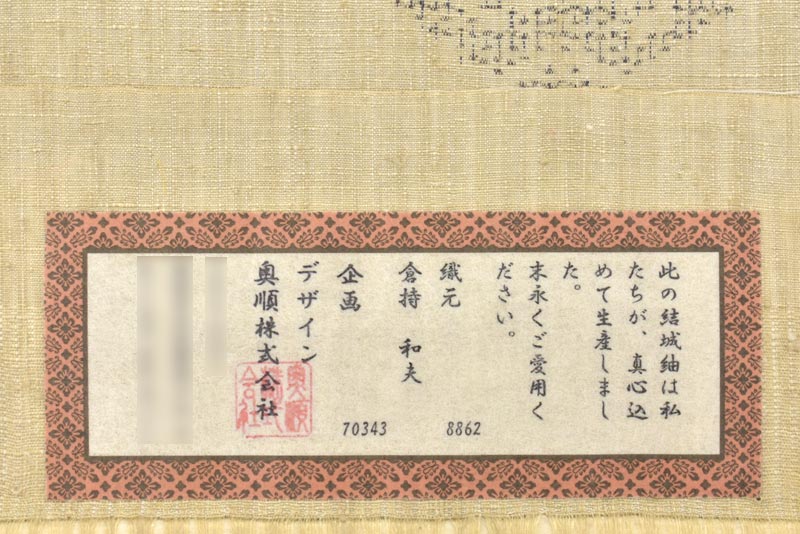 此の結城紬は私
たちが、真心込
めて生産しまし
た。
末永くご愛用く
ださい。
織元
8862
倉持 和夫
企画
70343
デザイン
奥順株式会社
奥順株式会社